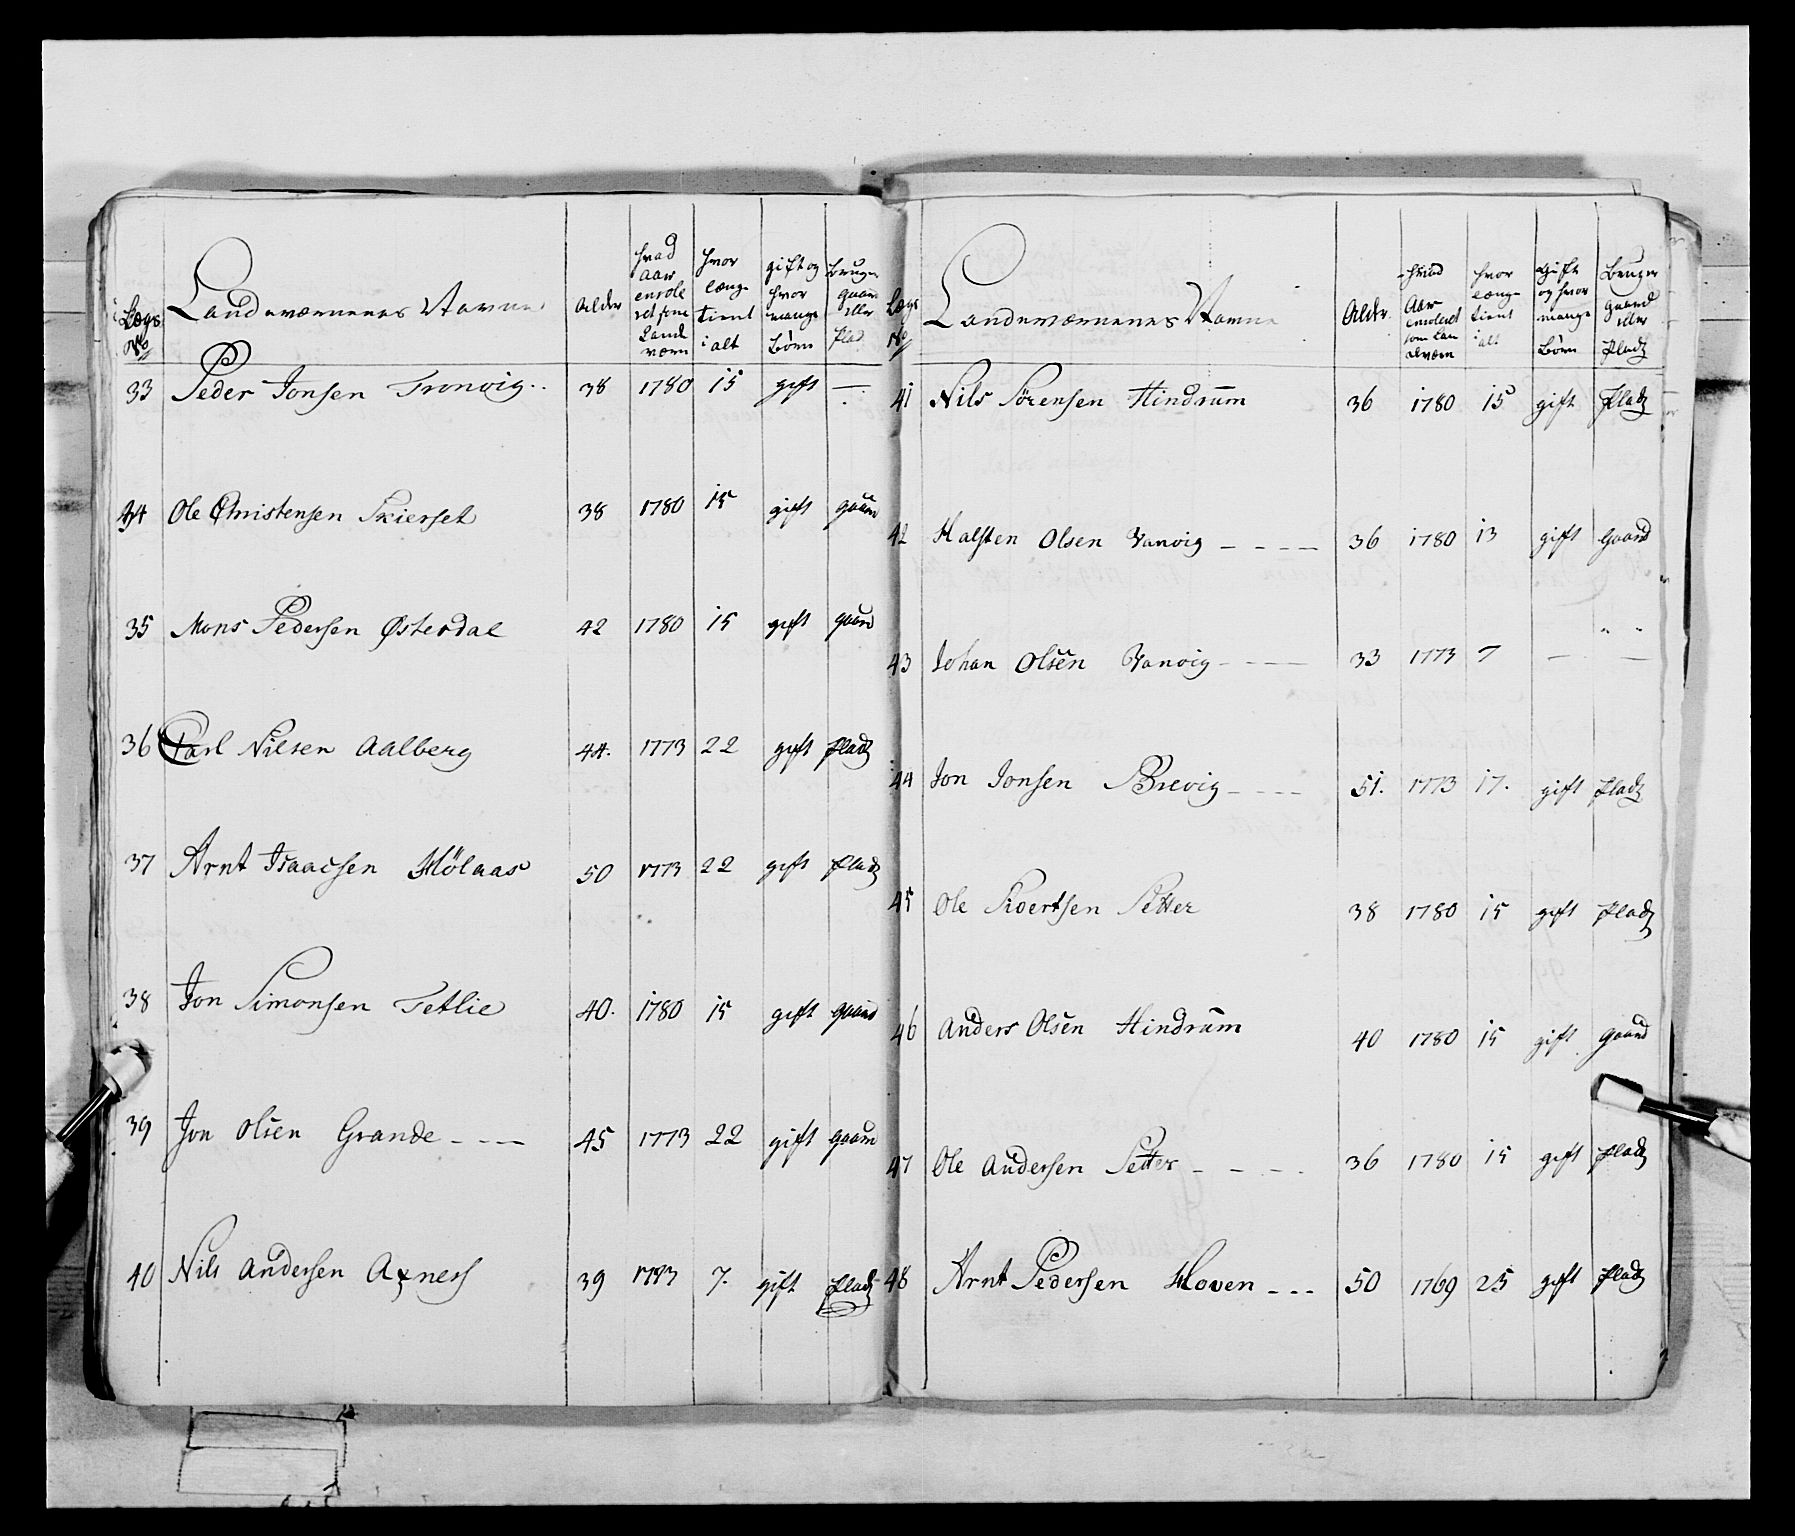 Lægs No
Landeværnenes Navne
Alder
hvad Aar enrolleret som Landværn
hvor længe tient i alt
gift og hvor mange Børn
Bruger gaard eller Plads
33 Peder Jonsen Tronvig 38 1780 15 gift —
34 Ole Christensen Skierset 38 1780 15 gift gaard
35 Mons Pedersen Østerdal 42 1780 15 gift gaard
36 Carl Nilsen Aalberg 44. 1773 22 gift Plads
37 Arnt Isaacsen Hölaas 50 1773 22 gift Plads
38 Jon Simonsen Tetlie 40. 1780 15 gift gaard
39 Jon Olsen Grande - - - 45 1773 22 gift gaard
40 Nils Andersen Axness 39 1783 7. gift Plads
Lægs No
Landeværnenes Navne
Alder
hvad Aar enrolleret som Landværn
hvor længe tient i alt
Gift og hvor mange Børn
Bruger gaard eller Plads
41 Nils Sörensen Hindrum 36 1780 15 gift Plads
42 Halsten Olsen Vanvig - - - - 36 1780 13 gift Gaard
43 Johan Olsen Vanvig - - - - 33 1773 7 — —
44 Jon Jonsen Brevig - - - - 51. 1773 17. gift Plads
45 Ole Sivertsen Setter 38 1780 15 gift Plads
46 Anders Olsen Hindrum 40 1780 15 gift gaard
47 Ole Andersen Setter - - - - 36 1780 15 gift Plads
48 Arnt Pedersen Hoven - - - 50 1769 25 gift Plads